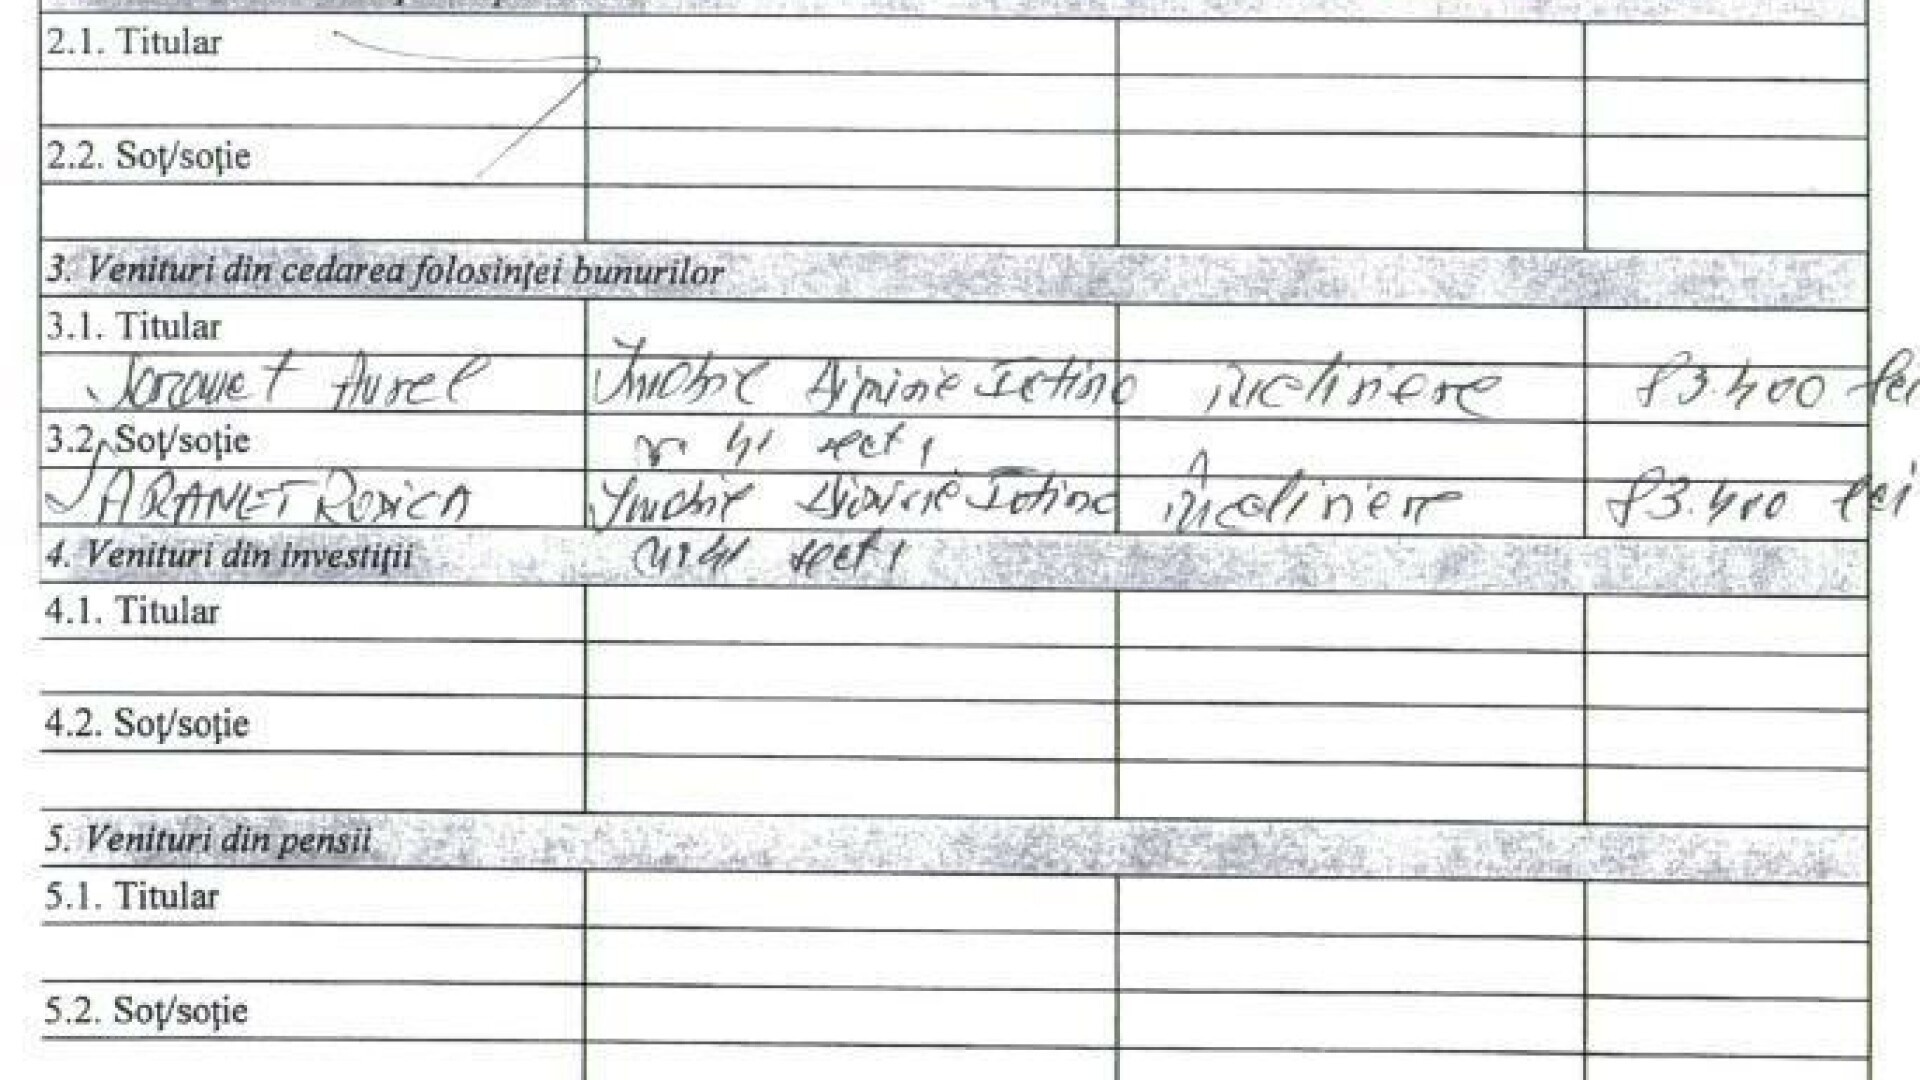 2.1. Titular
2.2. Soţ/soţie
3. Venituri din cedarea folosinţei bunurilor
3.1. Titular
Aurel Imobil închiriere 83.400 lei
3.2. Soţ/soţie
41 sect 1
RODICA Imobil închiriere 83.400 lei
4. Venituri din investiţii
nr. 41 sect 1
4.1. Titular
4.2. Soţ/soţie
5. Venituri din pensii
5.1. Titular
5.2. Soţ/soţie